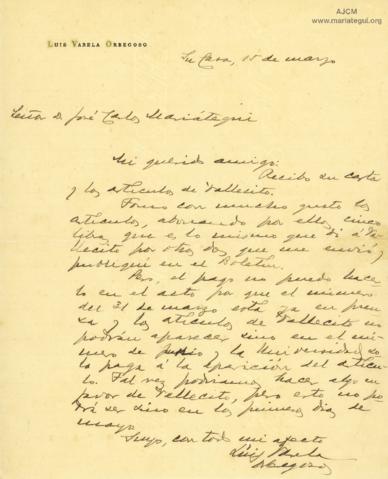 AJCM
www.mariategui.org
LUIS VARELA ORBEGOSO
Su Casa, 15 de marzo
Señor D. José Carlos Mariátegui
Mi querido amigo:
Recibo su carta
y los artículos de Vallecito.
Tomo con mucho gusto los
artículos, abonando por ellos cinco
libras, que es lo mismo que di á Va
llecito por otros dos que me envió y
publiqué en el Boletín.
Pero, el pago no puedo hacer
lo en el acto por que el número
del 31 de marzo está ya en pren
sa y los artículos de Vallecito no
podrán aparecer sino en el nú
mero de y la Universidad so
lo paga á la aparición del artícu
lo. Tal vez podríamos hacer algo en
favor de Vallecito, pero esto no po
drá ser sino en los primeros días de
mayo.
Suyo, con todo mi afecto
Luis Varela
Orbegoso